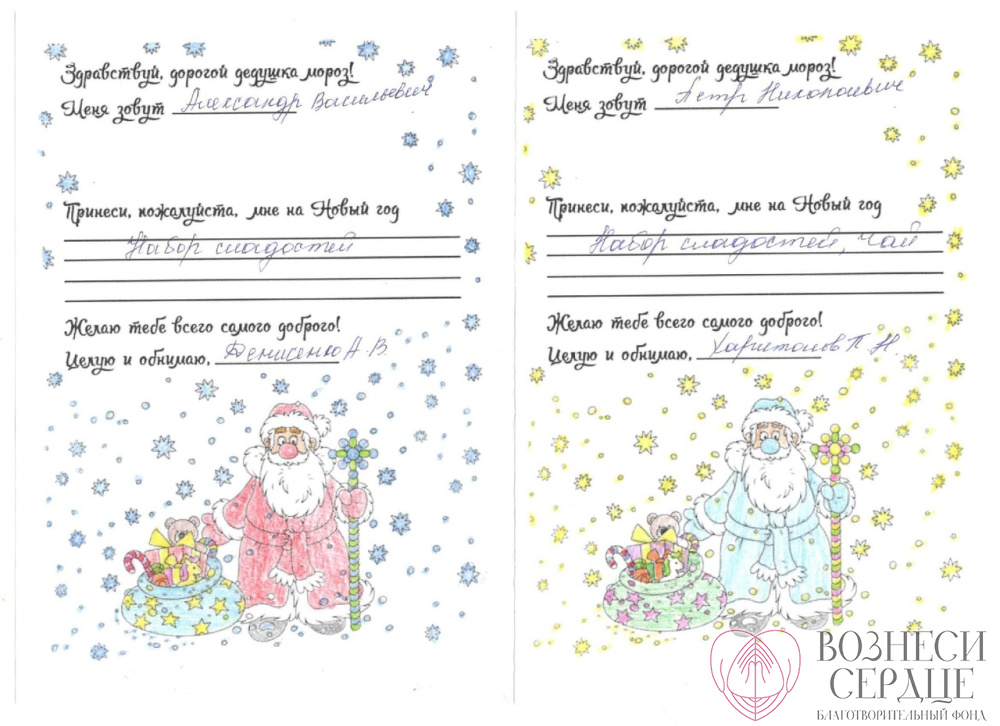 Здравствуй, дорогой дедушка мороз!
Меня зовут Александр Васильевич
Принеси, пожалуйста, мне на Новый год
Набор сладостей
Желаю тебе всего самого доброго!
Целую и обнимаю, Денисенко А. В.
Здравствуй, дорогой дедушка мороз!
Меня зовут Петр Николаевич
Принеси, пожалуйста, мне на Новый год
Набор сладостей, чай
Желаю тебе всего самого доброго!
Целую и обнимаю, Харитонов П. Н.
ВОЗНЕСИ
СЕРДЦЕ
БЛАГОТВОРИТЕЛЬНЫЙ ФОНД